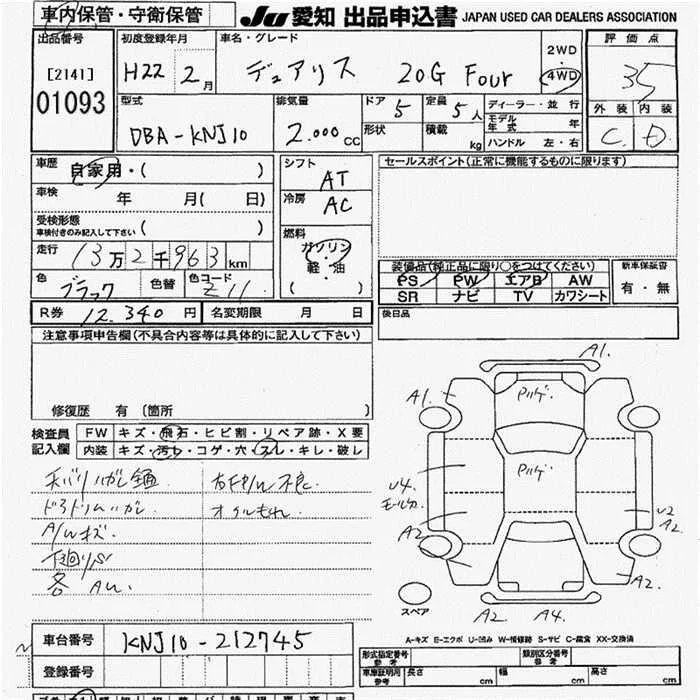 車内保管・守衛保管
JU 愛知 出品申込書 JAPAN USED CAR DEALERS ASSOCIATION
出品番号
[2141]
01093
初度登録年月
H22 2月
車名・グレード
デュアリス 20G Four
2WD
4WD
評価点
3.5
外装 内装
C D
型式
DBA-KNJ10
排気量
2.000cc
ドア 5
形状
定員 5人
積載 kg
ディーラー・並行
モデル年式 年
ハンドル 左・右
車歴 自家用・( )
車検 年 月( 日)
受検形態
車検付きのみ記入して下さい ( )
走行 13万2千963km
色 ブラック 色替 色コード Z11
シフト AT
冷房 AC
燃料
ガソリン
軽・油
( )
セールスポイント(正常に機能するものに限ります)
装備品(純正品に限り○をつけてください)
PS PW エアB AW
SR ナビ TV カワシート
新車保証書
有・無
R券 12.340円 名変期限 月 日
後日品
注意事項申告欄(不具合内容等は具体的に記入して下さい)
修復歴 有 (箇所 )
検査員
記入欄
FW キズ・飛石・ヒビ割・リペア跡・X要
内装 キズ・汚レ・コゲ・穴・スレ・キレ・破レ
A/Wキズ
下廻りS
各 AU.
オイルもれ
A1.
A1.
A2
U2
A2.
A2.
A2. A4.
スペア
A-キズ E-エクボ U-凹み W-補修跡 S-サビ C-腐食 XX-交換済
車台番号 KNJ10-212745
登録番号
形式指定番号 参考
類別区分番号 参考
車庫証明用 参考 長さ cm 幅 cm 高さ cm